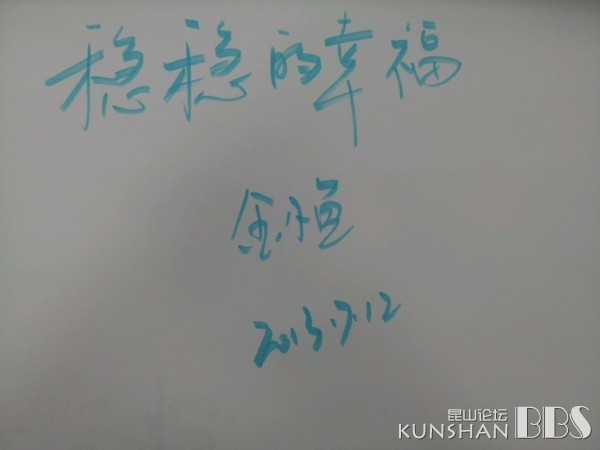 稳稳的幸福
金恒
2013.7.12
昆山论坛
KUNSHAN BBS